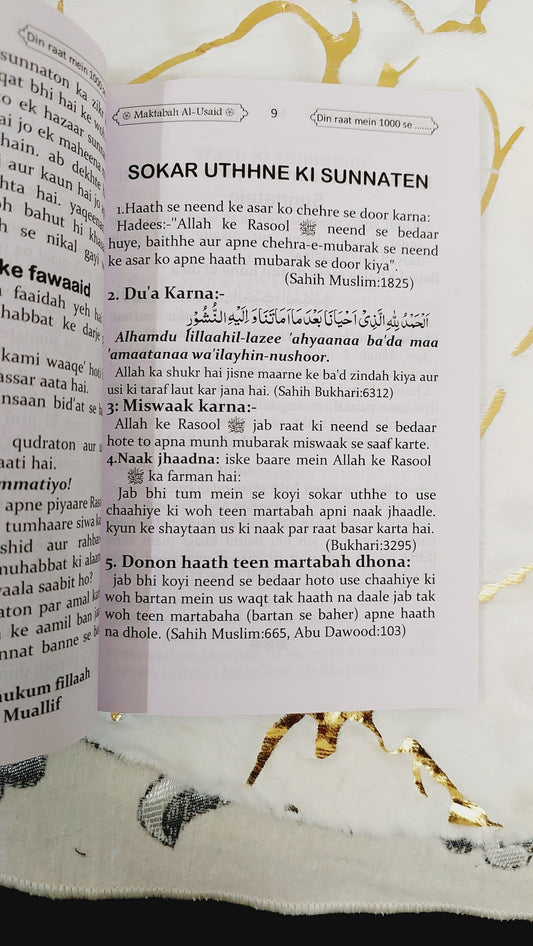 Din raat mein 1000 se
sunnaton ka zikr
qat bhi hai ke woh
o ek hazaar sunn
ai jo ek maheena
hain. ab dekhte
i aur kaun hai jo
hta hai. yaqeenan
oh bahut hi khas
h se nikal gayi
ke fawaaid
faaidah yeh hai
habbat ke darje
kami waaqe' hoti
assar aata hai.
nsaan bid'at se ba
qudraton aur u
aati hai.
mmatiyo!
apne piyaare Rasool
tumhaare siwa ka
shid aur rahbar
muhabbat ki alaam
vaala saabit ho?
aton par amal kar
ke aamil ban ja
nnat banne se ba
ukum fillaah
Muallif
Maktabah Al-Usaid 9 Din raat mein 1000 se .......
SOKAR UTHHNE KI SUNNATEN
1.Haath se neend ke asar ko chehre se door karna:
Hadees:-"Allah ke Rasool ﷺ neend se bedaar
huye, baithhe aur apne chehra-e-mubarak se neend
ke asar ko apne haath mubarak se door kiya".
(Sahih Muslim:1825)
2. Du'a Karna:-
اَلْحَمْدُ لِلّٰهِ الَّذِيْ اَحْيَانَا بَعْدَ مَا اَمَاتَنَا وَ اِلَيْهِ النُّشُوْر
Alhamdu lillaahil-lazee 'ahyaanaa ba'da maa
'amaatanaa wa'ilayhin-nushoor.
Allah ka shukr hai jisne maarne ke ba'd zindah kiya aur
usi ki taraf laut kar jana hai. (Sahih Bukhari:6312)
3: Miswaak karna:-
Allah ke Rasool ﷺ jab raat ki neend se bedaar
hote to apna munh mubarak miswaak se saaf karte.
4.Naak jhaadna: iske baare mein Allah ke Rasool
ﷺ ka farman hai:
Jab bhi tum mein se koyi sokar uthhe to use
chaahiye ki woh teen martabah apni naak jhaadle.
kyun ke shaytaan us ki naak par raat basar karta hai.
(Bukhari:3295)
5. Donon haath teen martabah dhona:
jab bhi koyi neend se bedaar hoto use chaahiye ki
woh bartan mein us waqt tak haath na daale jab tak
woh teen martabaha (bartan se baher) apne haath
na dhole. (Sahih Muslim:665, Abu Dawood:103)